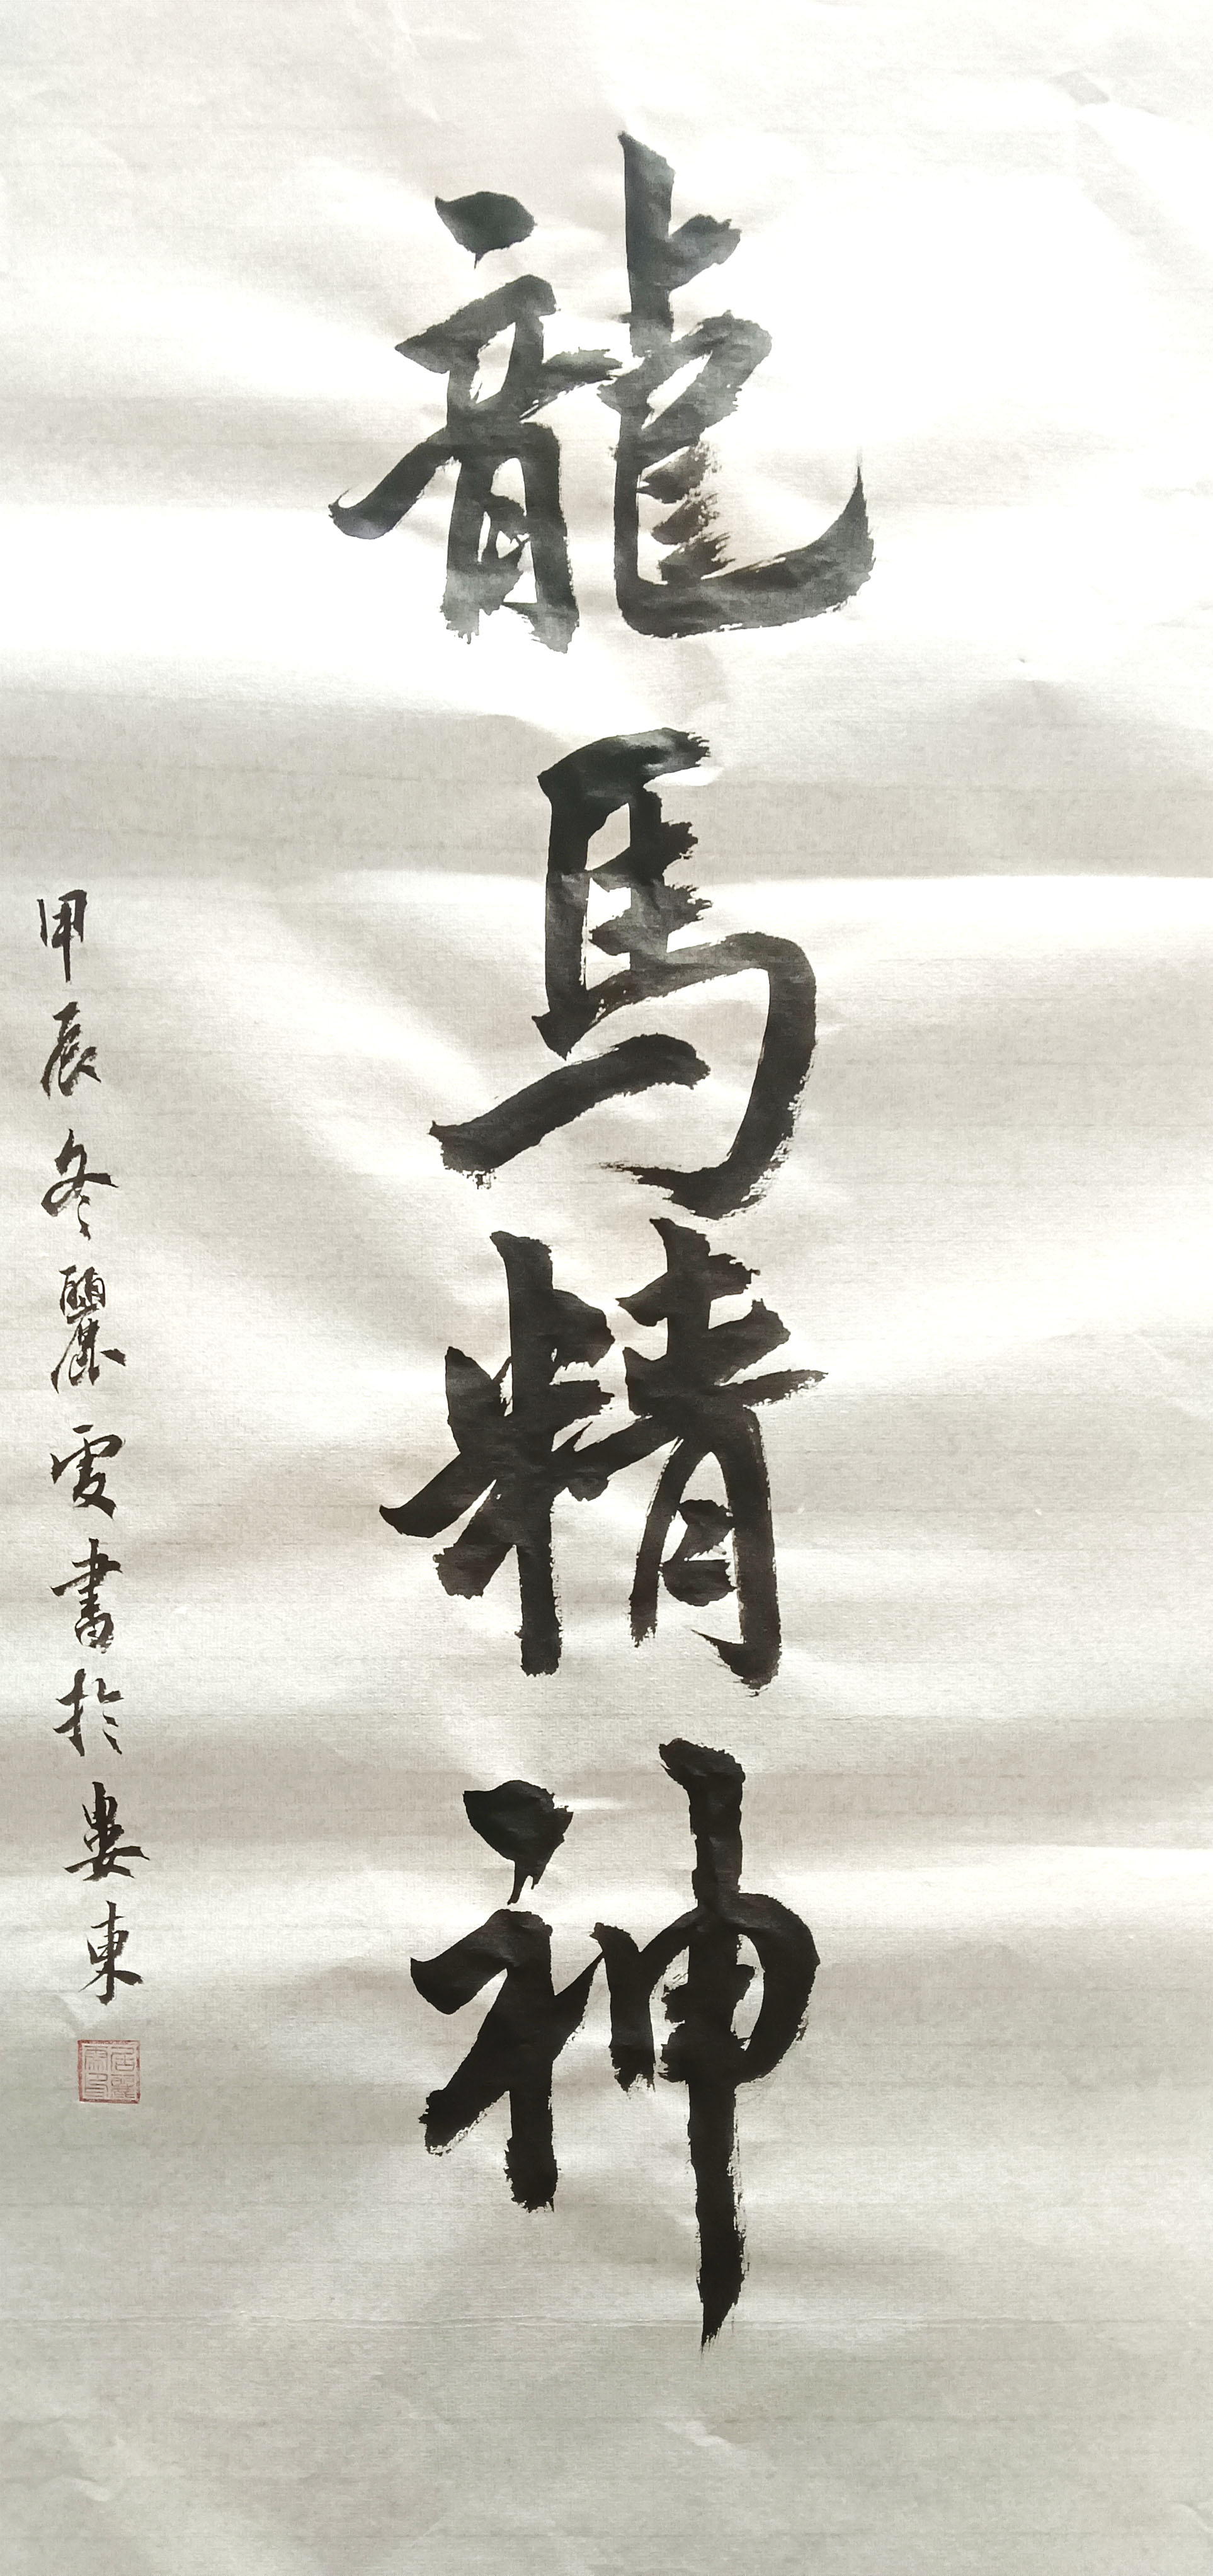 龍馬精神
甲辰冬麗雯書於婁東